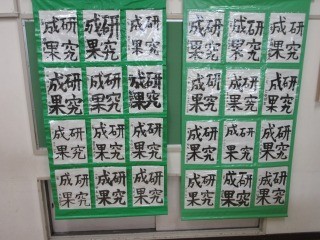 研究
成果
研究
成果
研究
成果
研究
成果
研究
成果
研究
成果
研究
成果
研究
成果
研究
成果
研究
成果
研究
成果
研究
成果
研究
成果
研究
成果
研究
成果
研究
成果
研究
成果
研究
成果
研究
成果
研究
成果
研究
成果
研究
成果
研究
成果
研究
成果